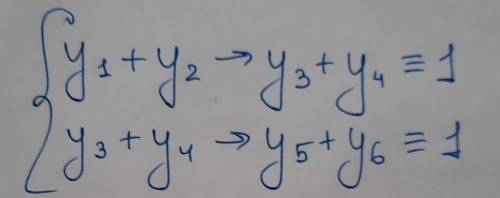 y₁ + y₂ → y₃ + y₄ ≡ 1
y₃ + y₄ → y₅ + y₆ ≡ 1